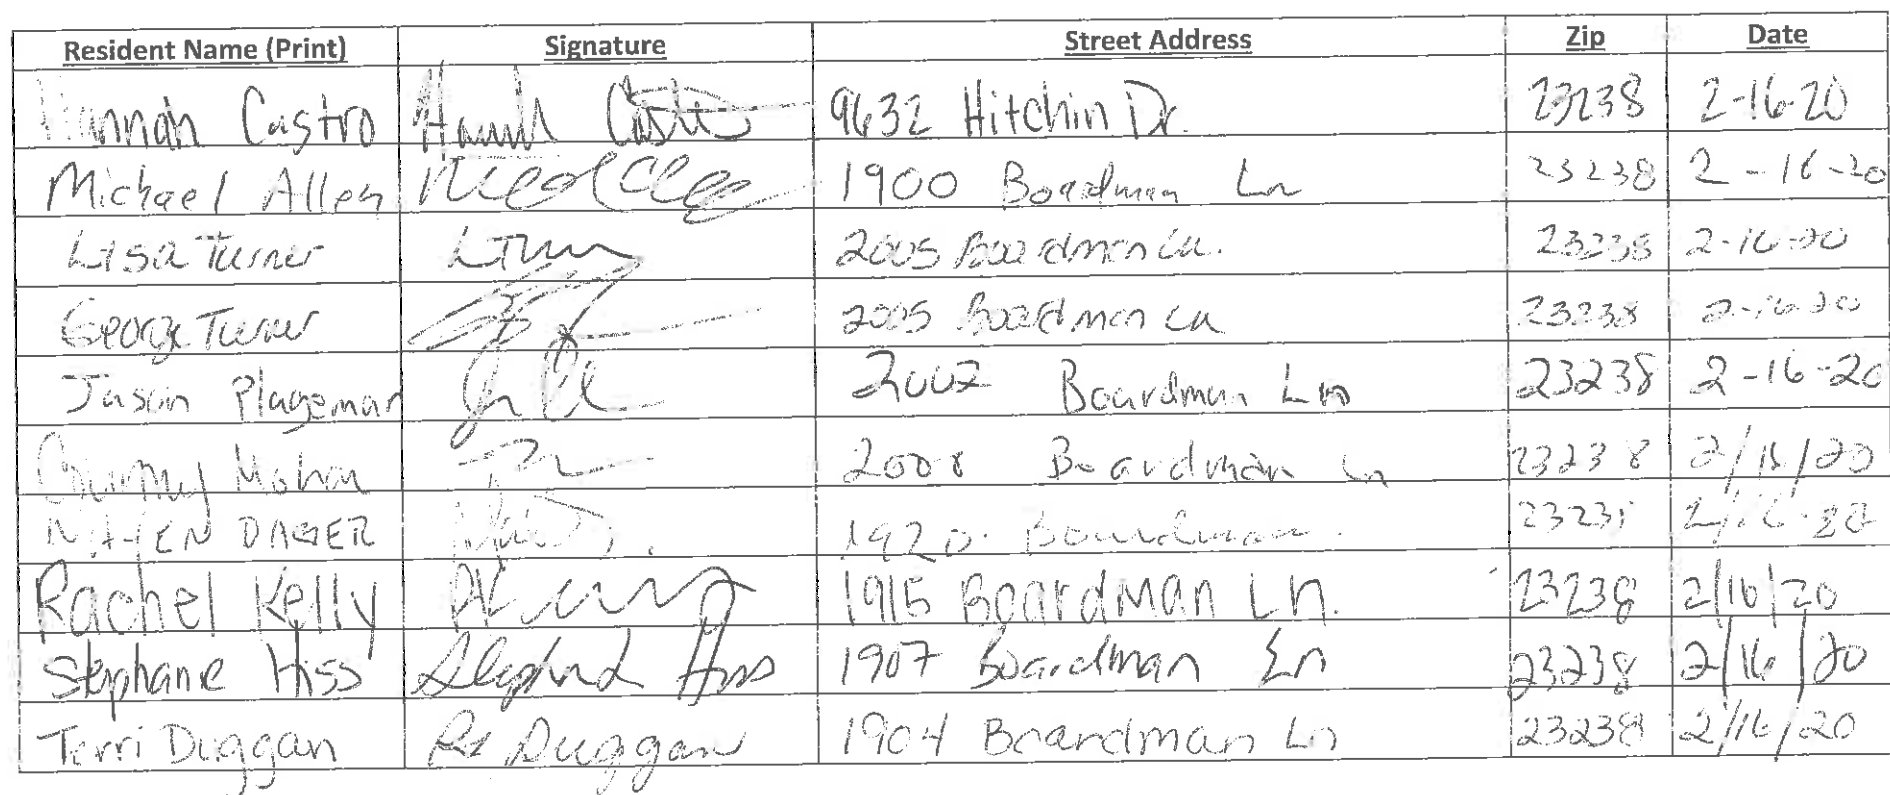 Resident Name (Print) Signature Street Address Zip Date
Hannah Castro Hannah Castro 9632 Hitchin Dr. 23238 2-16-20
Michael Allen 1900 Boardman Ln 23238 2-16-20
Lisa Turner LTurn 2005 Boardman Ln. 23238 2-16-20
George Turner 2005 Boardman Ln 23238 2-16-20
Jason Plageman 2002 Boardman Ln 23238 2-16-20
Mohan Boardman Ln 23238 2/16/20
DAGER 1920 Boardman 2/16-20
Rachel Kelly 1915 Boardman Ln. 23238 2/16/20
Stephanie Hiss Stephanie Hiss 1907 Boardman Ln 23238 2/16/20
Terri Duggan Duggan 1904 Boardman Ln 23238 2/16/20